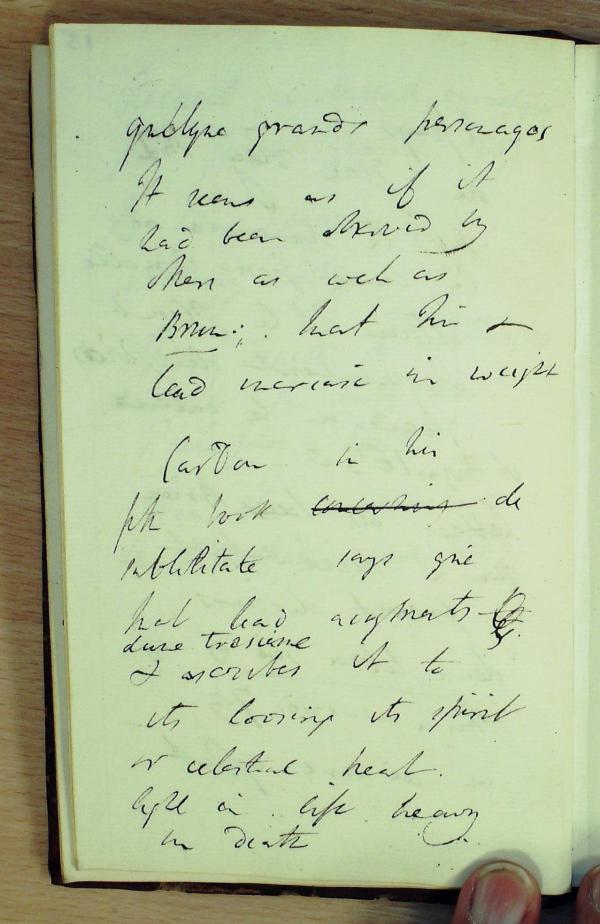 quelque grands personages
It seems as if it
had been observed by
others as well as
Brun: that tin &
lead increase in weight
Cardan in his
5th book concerning de
subtilitate says que
that lead augments
d'une tresieme
& ascribes it to
its loosing its spirit
or celestial heat.
light in life heavy
in death